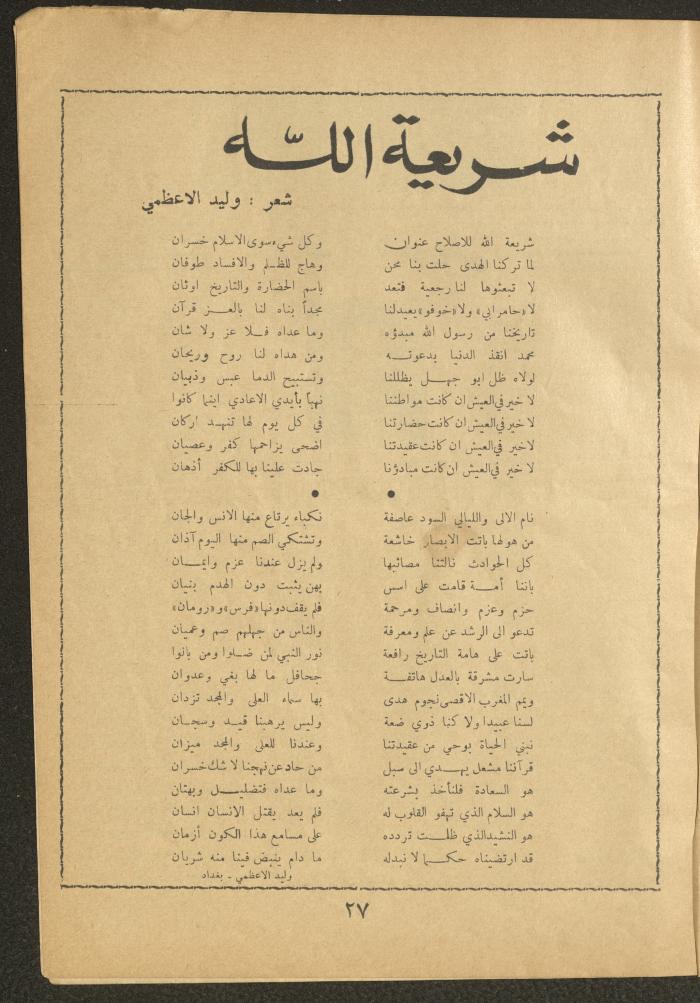 شريعة الله
شعر : وليد الاعظمي
شريعة الله للاصلاح عنوان وكل شيء سوى الاسلام خسران
لما تركنا الهدى حلت بنا محن وهاج للظلم والافساد طوفان
لا تبعثوها لنا رجعية فتعد باسم الحضارة والتاريخ اوثان
لا «حامرابي» ولا «خوفو» يعيد لنا مجداً بناه لنا بالعز قرآن
تاريخنا من رسول الله مبدؤه وما عداه فلا عز ولا شان
محمد انقذ الدنيا بدعوته ومن هداه لنا روح وريحان
لولاه ظل ابو جهل يظللنا وتستبيح الدما عبس وذبيان
لا خير في العيش ان كانت مواطننا نهباً بأيدي الاعادي اينما كانوا
لا خير في العيش ان كانت حضارتنا في كل يوم لها تنهد اركان
لا خير في العيش ان كانت عقيدتنا اضحى يزاحمها كفر وعصيان
لا خير في العيش ان كانت مبادؤنا جادت علينا بها للكفر أذهان
● ●
نام الالى والليالي السود عاصفة نكباء يرتاع منها الانس والجان
من هولها باتت الابصار خاشعة وتشتكي الصم منها اليوم آذان
كل الحوادث نالتنا مصائبها ولم يزل عندنا عزم وايمان
باننا أمة قامت على اسس بهن يثبت دون الهدم بنيان
حزم وعزم وانصاف ومرحمة فلم يقف دونها «فرس» و«رومان»
تدعو الى الرشد عن علم ومعرفة والناس من جهلهم صم وعميان
باتت على هامة التاريخ رافعة نور النبي لمن ضلوا ومن بانوا
سارت مشرقة بالعدل هاتفة جحافل ما لها بغي وعدوان
ويمم المغرب الاقصى نجوم هدى بها سماء العلى والمجد تزدان
لسنا عبيدا ولا كنا ذوي ضعة وليس يرهبنا قيد وسجان
نبني الحياة بوحي من عقيدتنا وعندنا للعلى والمجد ميزان
قرآننا مشعل يهدي الى سبل من حاد عن نهجنا لا شك خسران
هو السعادة فلنأخذ بشرعته وما عداه فتضليل وبهتان
هو السلام الذي تهفو القلوب له فلم يعد يقتل الانسان انسان
هو النشيد الذي ظلت تردده على مسامع هذا الكون أزمان
قد ارتضيناه حكما لا نبدله ما دام ينبض فينا منه شريان
وليد الاعظمي ـ بغداد
٢٧